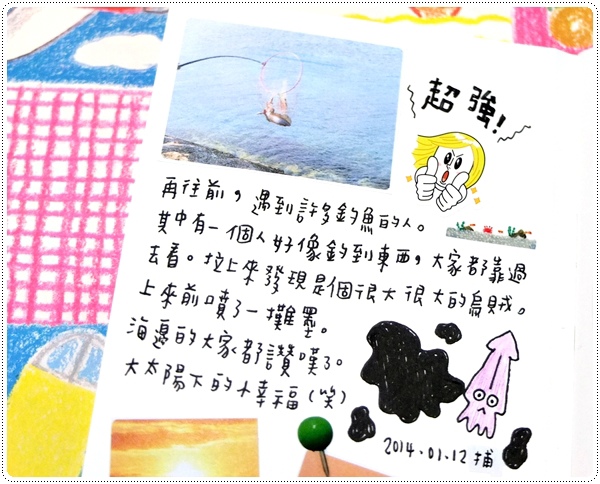 超強!
再往前，遇到許多釣魚的人。
其中有一個人好像釣到東西，大家都靠過
去看。拉上來發現是個很大很大的烏賊。
上來前噴了一攤墨。
海邊的大家都讚嘆了。
大太陽下的小幸福(笑)
2014.01.12 捕